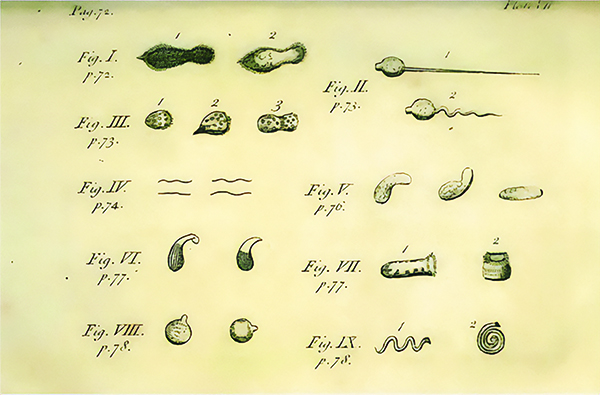 Pag. 72.
Plate VII
Fig. I.
p. 72.
1 2
Fig. II.
p. 73.
1
2
Fig. III.
p. 73.
1 2 3
Fig. IV.
p. 74.
Fig. V.
p. 76.
Fig. VI.
p. 77.
Fig. VII.
p. 77.
1 2
Fig. VIII.
p. 78.
Fig. IX.
p. 78.
1 2